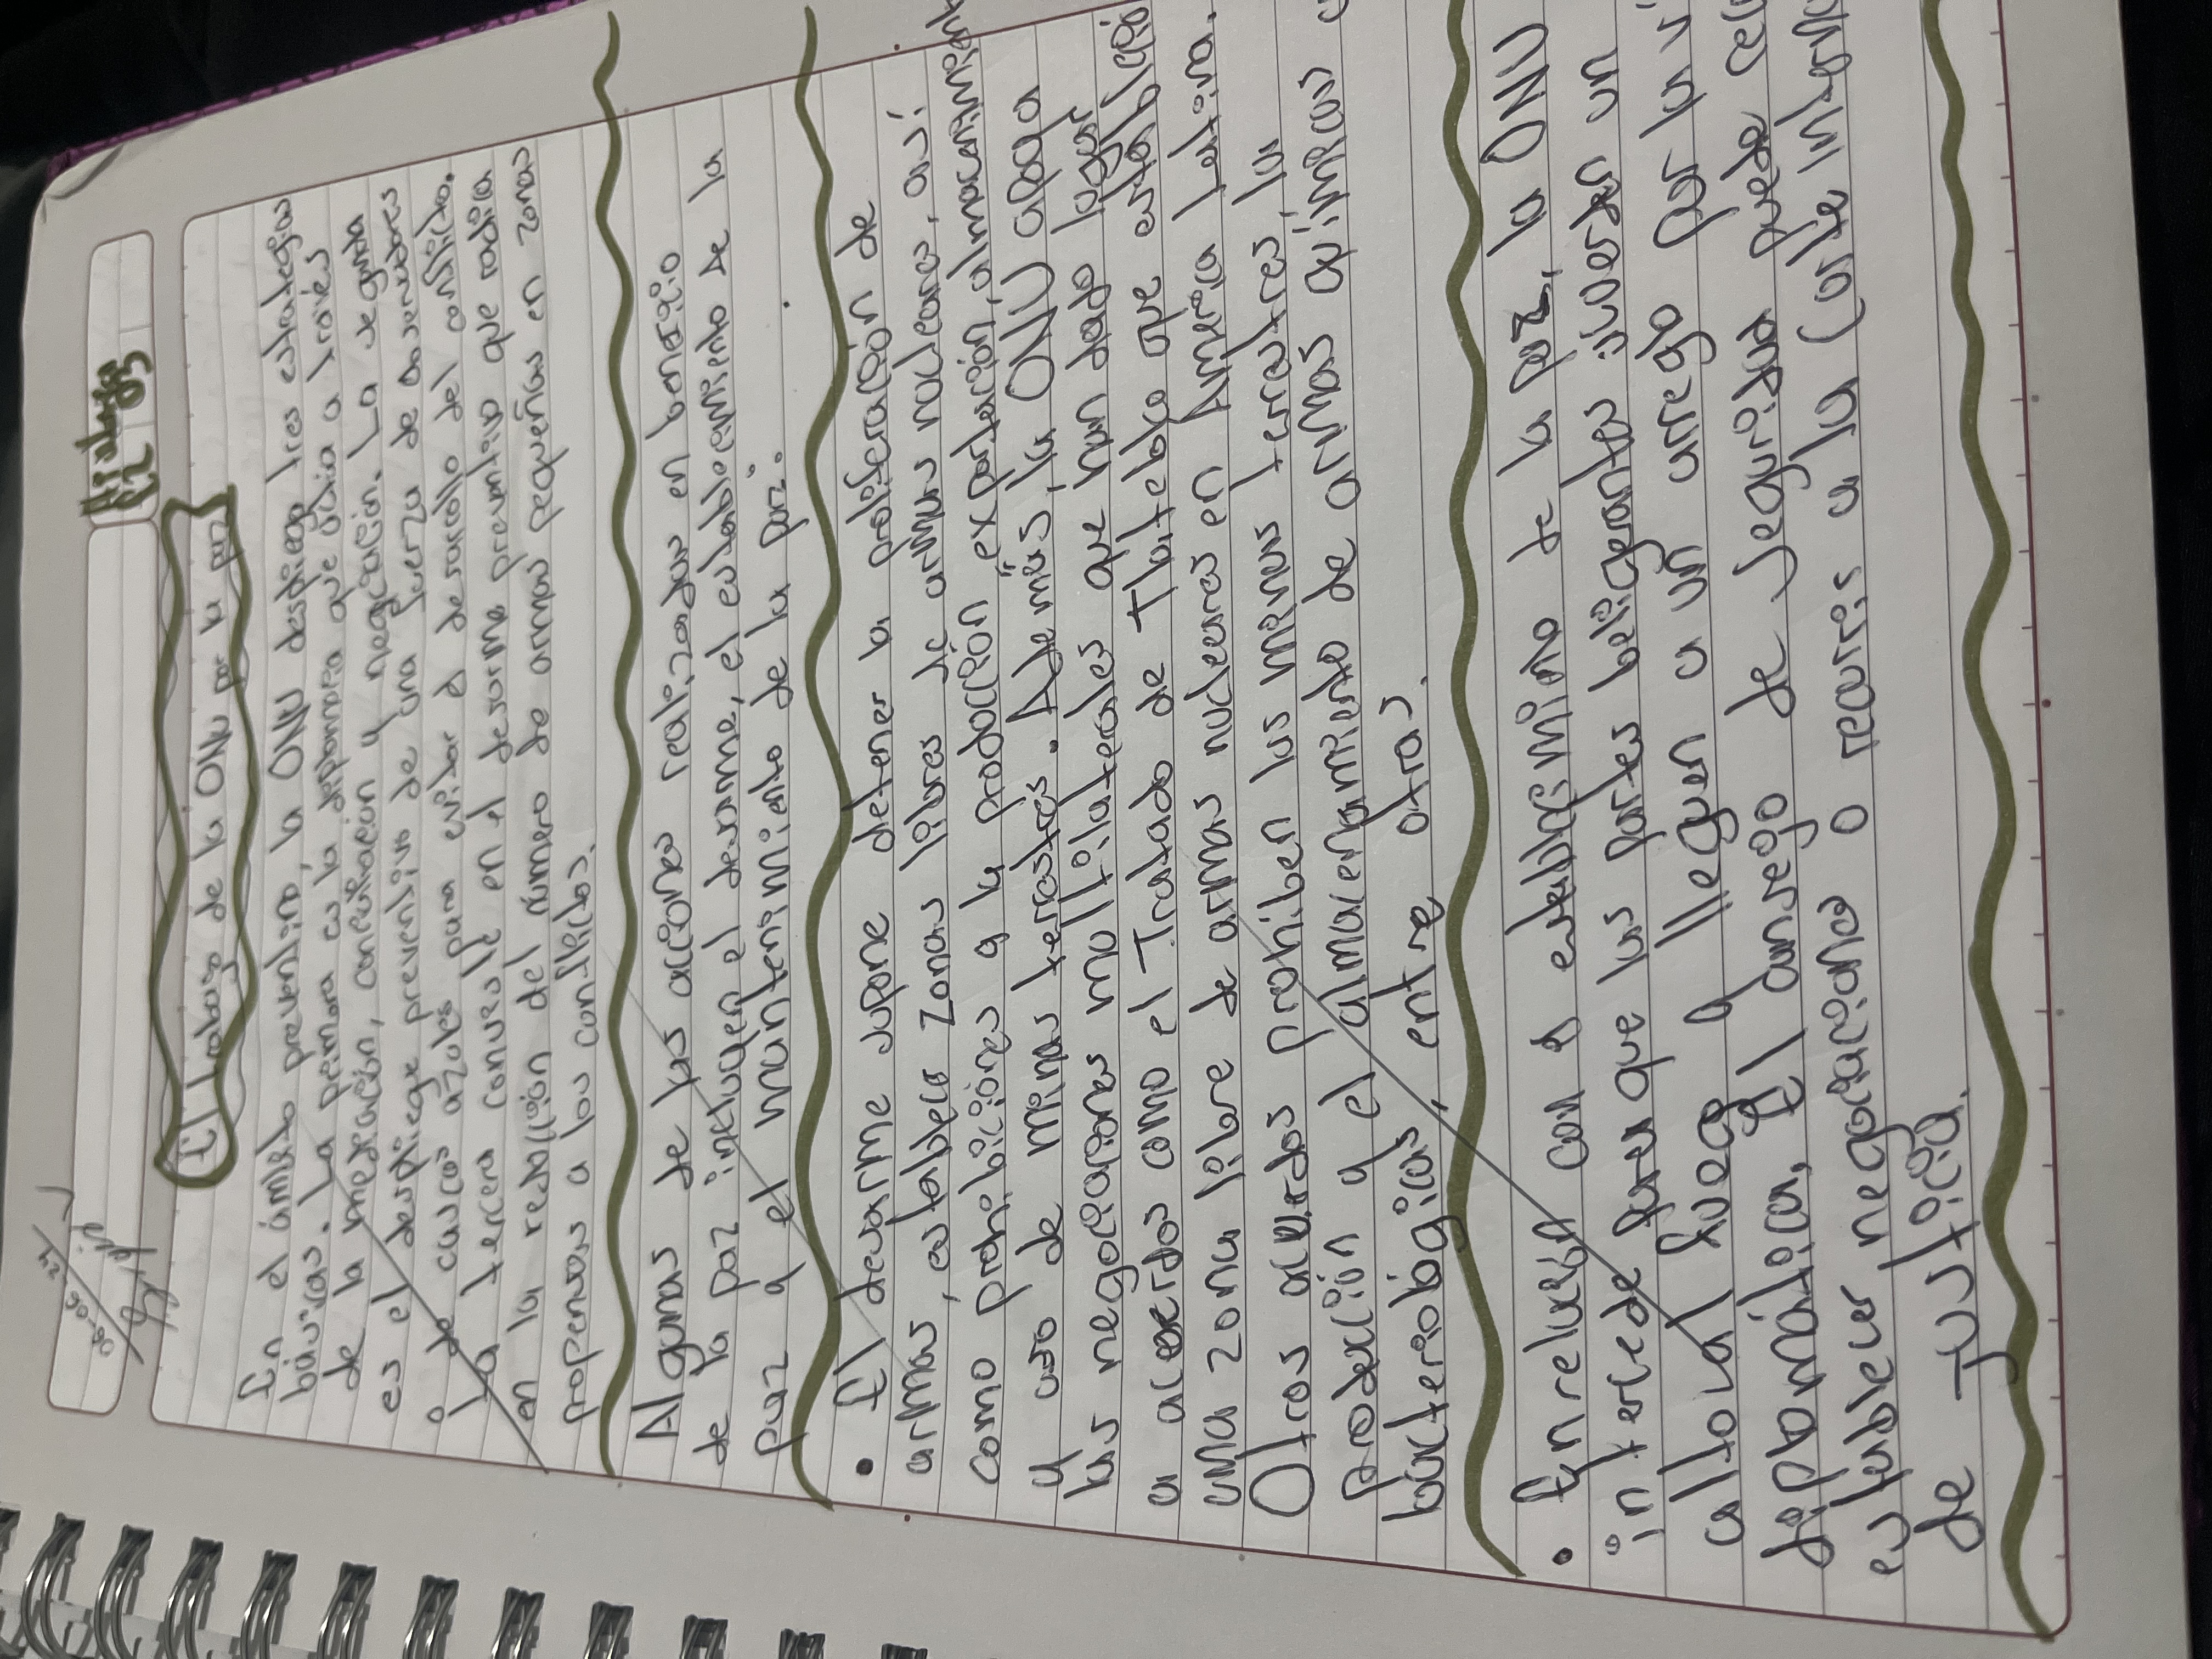 06-06-24
El trabajo de la ONU por la paz
En el ámbito preventivo, la ONU despliega tres estrategias
básicas. La primera es la diplomacia que guía a través
de la mediación, conciliación y negociación. La segunda
es el despliegue preventivo de una fuerza de observadores
o de cascos azules para evitar el desarrollo del conflicto.
La tercera consiste en el desarme preventivo que radica
en la reducción del número de armas pequeñas en zonas
propensas a los conflictos.
Algunas de las acciones realizadas en beneficio
de la paz incluyen el desarme, el establecimiento de la
paz y el mantenimiento de la paz.
• El desarme supone detener la proliferación de
armas, establece zonas libres de armas nucleares, así
como prohibiciones a la producción, exportación, almacenamiento
y uso de minas terrestres. Además, la ONU apoya
las negociaciones multilaterales que han dado lugar
a acuerdos como el Tratado de Tlatelolco que
una zona libre de armas nucleares en América Latina.
Otros acuerdos prohiben las minas terrestres, la
producción y el almacenamiento de armas químicas o
bacteriológicas, entre otras.
• En relación con el establecimino de la paz, la ONU
intercede para que las partes beligerantes suscriban un
alto al fuego y lleguen a un arreglo por la
diplomática. El consejo de Seguridad puede
establecer negociaciones o recurrir a la Corte
de Justicia.